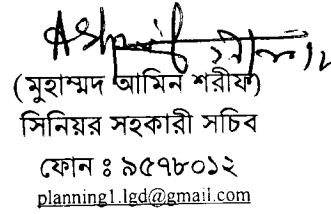 (মুহাম্মদ আমিন শরীফ)
সিনিয়র সহকারী সচিব
ফোন ঃ ৯৫৭৮০১২
planning1.lgd@gmail.com